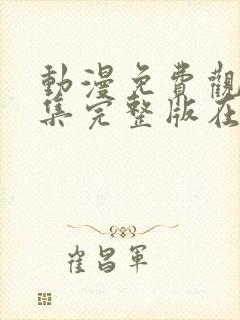 動漫免費觀
集完整版在
崔昌軍